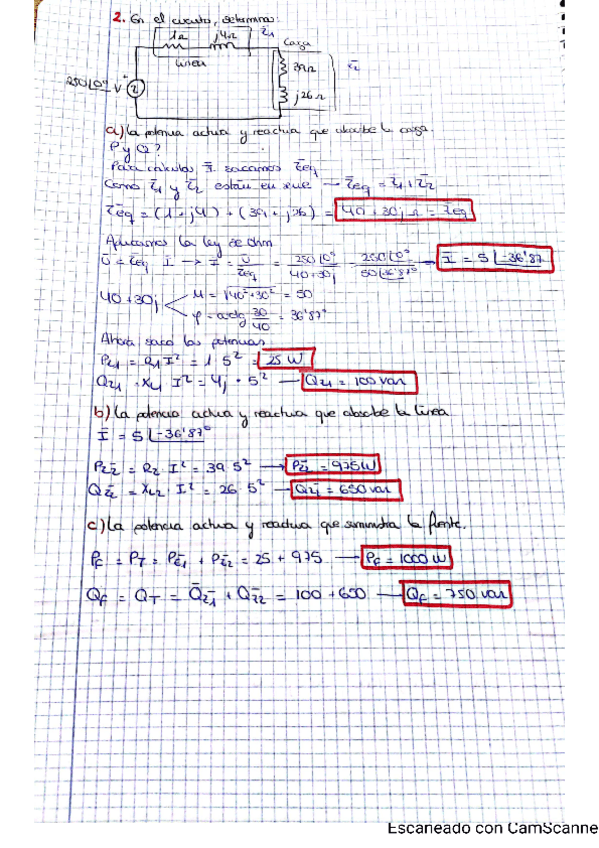 2. En el circuito, determina:
1Ω j4Ω z̄1
línea
Carga
39Ω z̄2
j26Ω
250∠0° V
a) La potencia activa y reactiva que absorbe la carga.
P y Q?
Para calcular Ī sacamos z̄eq
Como z̄1 y z̄2 están en serie → z̄eq = z̄1 + z̄2
z̄eq = (1 + j4) + (39 + j26) = 40 + 30j Ω = z̄eq
Aplicamos la ley de Ohm
Ū = z̄eq · Ī → Ī = Ū/z̄eq = 250∠0°/40+30j = 250∠0°/50∠36'87° → Ī = 5∠-36'87
40 + 30j
M = √40²+30² = 50
φ = arctg 30/40 = 36'87°
Ahora saco las potencias
Pz1 = R1 I² = 1 · 5² = 25 W
Qz1 = XL1 I² = 4j · 5² → Qz1 = 100 var
b) La potencia activa y reactiva que absorbe la línea
Ī = 5∠-36'87°
Pz̄2 = R2 · I² = 39 · 5² → Pz̄2 = 975 W
Qz̄2 = XL2 · I² = 26 · 5² → Qz̄1 = 650 var
c) La potencia activa y reactiva que suministra la fuente.
PF = PT = Pz̄1 + Pz̄2 = 25 + 975 → PF = 1000 W
QF = QT = Qz̄1 + Qz̄2 = 100 + 650 → QF = 750 var
Escaneado con CamScanne